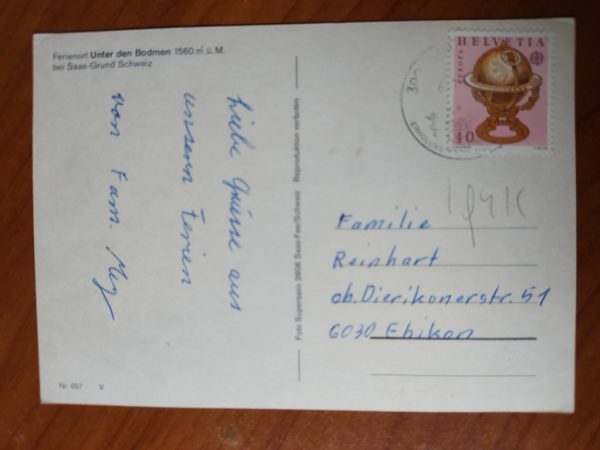 Ferienort Unter den Bodmen 1560 m ü.M.
bei Saas-Grund Schweiz
Liebe Grüsse aus
unseren Ferien
von Fam.
Foto Supersaxo 3906 Saas Fee/Schweiz Reproduktion verboten
HELVETIA
EUROPA
40
Familie
Reinhart
ob. Dierikonerstr. 51
6030 Ebikon
Nr. 657 V